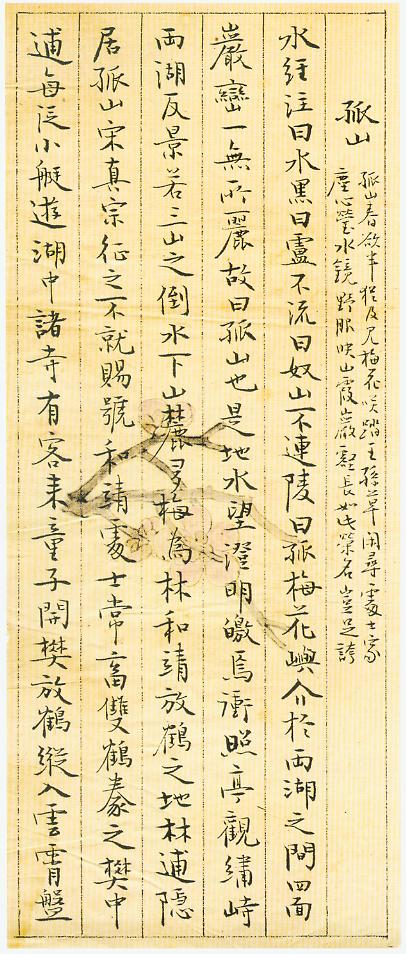 孤山
孤山春欲半猶及見梅花咲踏王孫草閒尋處士家
塵心瑩水鏡野服映山霞巖壑長如此榮名豈足誇
水經注曰水黑曰盧不流曰奴山不連陵曰孤梅花嶼介於兩湖之間四面
巖巒一無所麗故曰孤山也是地水望澄明皦焉衝照亭觀繡峙
兩湖反景若三山之倒水下山麓多梅為林和靖放鶴之地林逋隱
居孤山宋真宗征之不就賜號和靖處士常畜雙鶴豢之樊中
逋每泛小艇遊湖中諸寺有客来童子開樊放鶴縱入雲霄盤